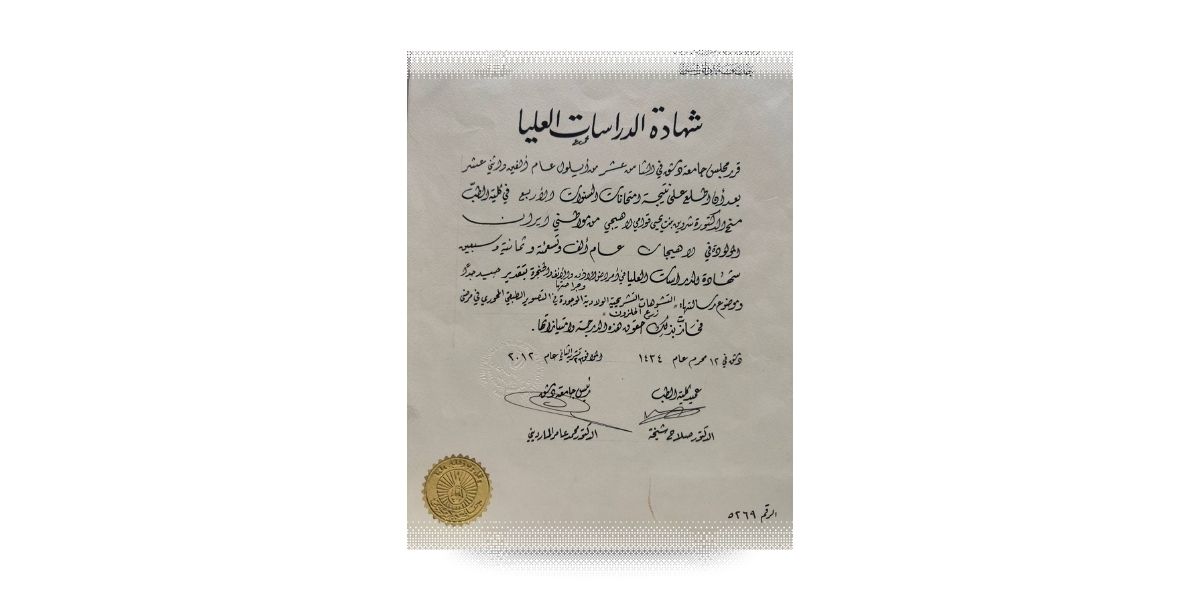 شهادة الدراسات العليا
قرر مجلس جامعة دمشق في الثامن عشر من أيلول عام ألفين واثني عشر
بعد أن اطلع على نتيجة امتحانات السنوات الأربع في كلية الطب
منح الدكتورة شروين بنت يحيى قوامي لاهيجي من مواطني ايران
المولودة في لاهيجان عام ألف وتسعمئة وثمانية وسبعين
شهادة الدراسات العليا في أمراض الأذن والأنف والحنجرة وجراحتها بتقدير جيد جداً
وموضوع رسالتها " التشوهات التشريحية الولادية الموجودة في التصوير الطبقي المحوري في مرضى
زرع الحلزون "
فحازت بذلك حقوق هذه الدرجة وامتيازاتها .
دمشق في ١٢ محرم عام ١٤٣٤ الموافق تشرين الثاني عام ٢٠١٢
عميد كلية الطب رئيس جامعة دمشق
الدكتور صلاح شيخة الدكتور محمد عامر المارديني
الرقم ٥٢٦٩